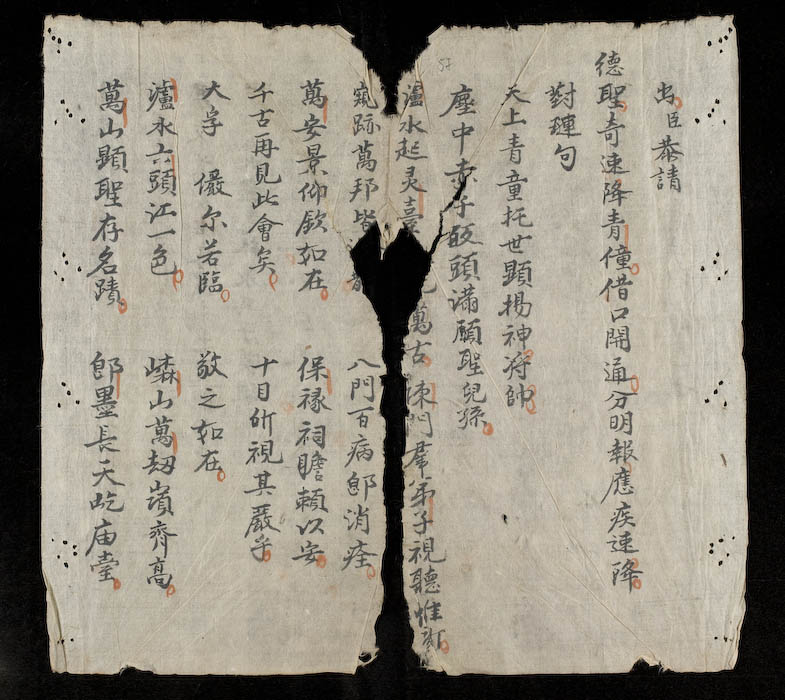 臣恭請
德聖奇速降青僮借口開通分明報應疾速降
對璉句
天上青童托世顕揚神将帥
塵中赤子皈頭滿願聖兒孫
瀘水起灵臺 萬古 陳門羣弟子視聽惟
跡萬邦皆 八門百病即消痊
萬安景仰欽如在 保禄祠瞻頼以安
千古再見此會矣 十目所視其嚴乎
大孚 儼尔若臨 敬之如在
瀘水六頭江一色 嶙山萬刼嶺齊髙
萬山顕聖存名蹟 即墨長天屹庙臺